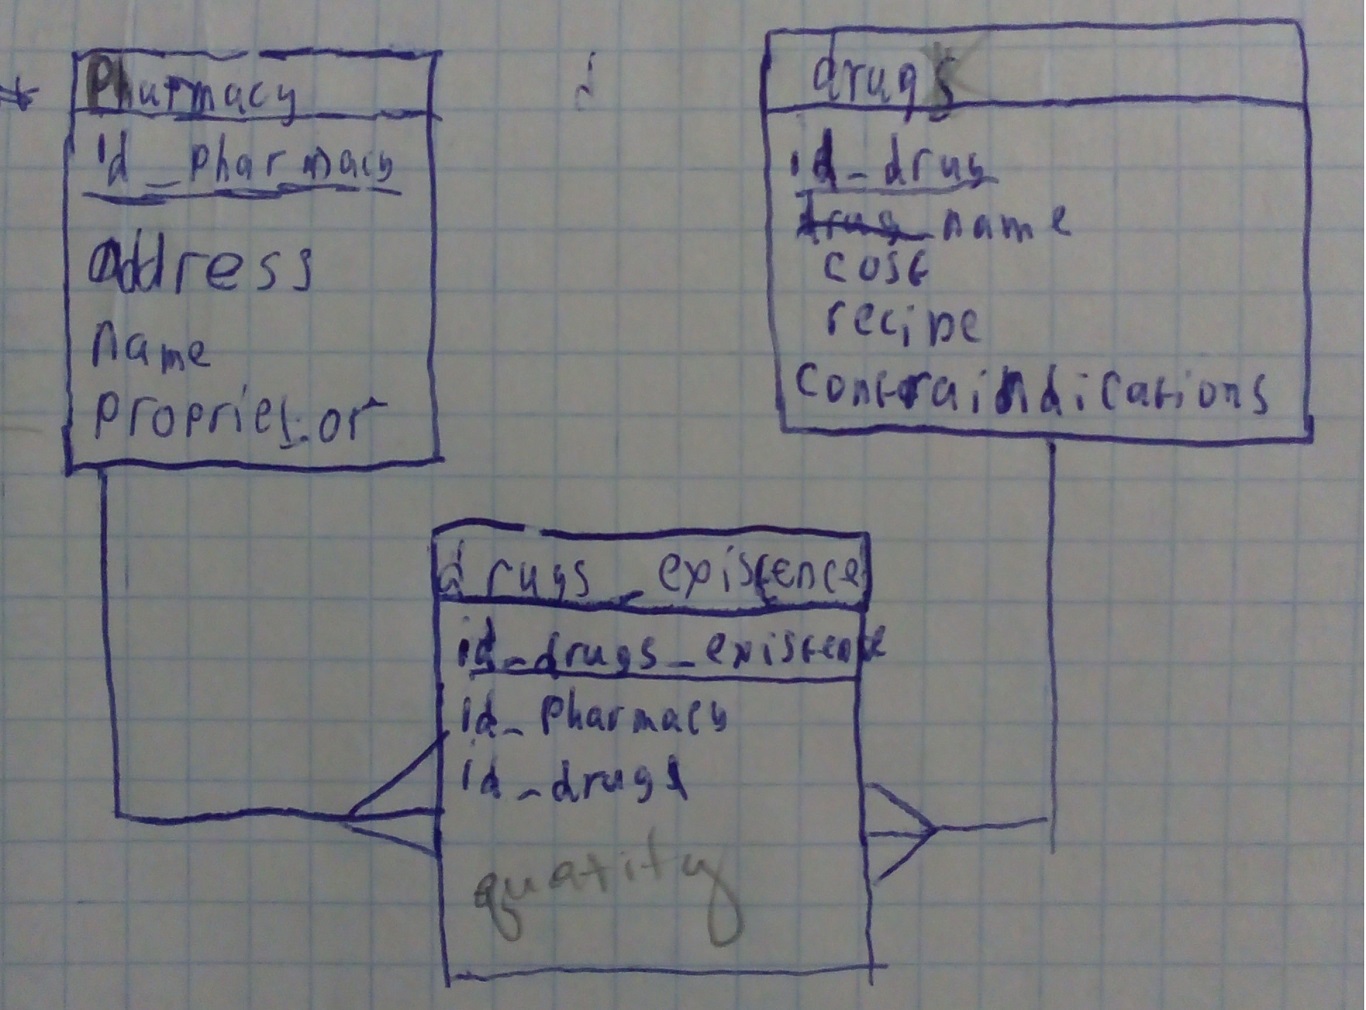 Pharmacy
id_pharmacy
address
name
proprietor
drugs
id_drug
drug_name
cost
recipe
contraindications
drugs_existence
id_drugs_existence
id_pharmacy
id_drugs
quatity